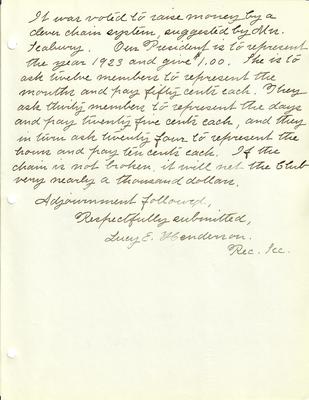 It was voted to raise money by a
clever chain system, suggested by Mr.
Seabury. Our President is to represent
the year 1923 and give $1.00. She is to
ask twelve members to represent the
months and pay fifty cents each. They
ask thirty members to represent the days
and pay twenty five cents each, and they
in turn ask twenty four to represent the
hours and pay ten cents each. If the
chain is not broken, it will net the Club
very nearly a thousand dollars.
Adjournment followed,
Respectfully submitted,
Lucy E. Henderson.
Rec. Sec.